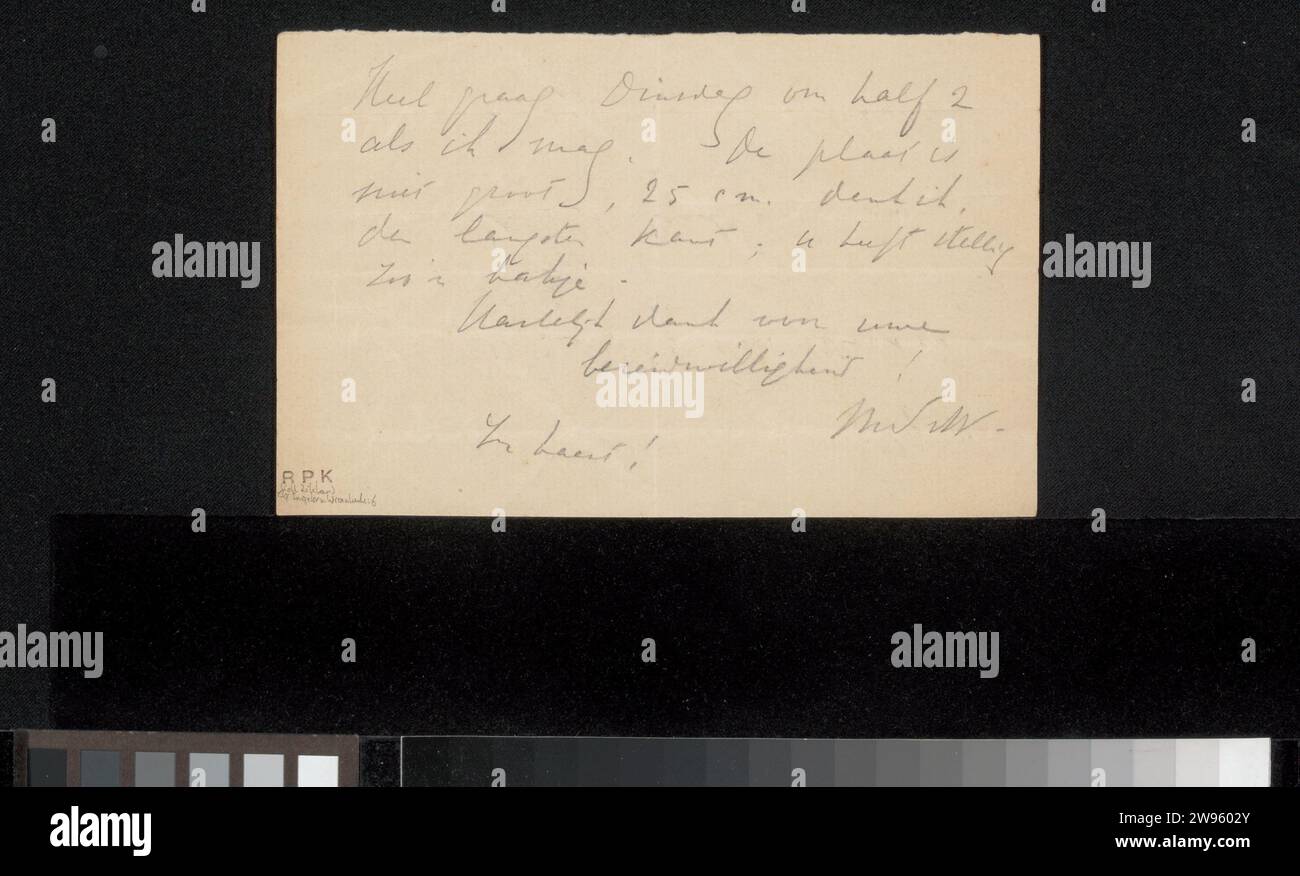 Heel graag Dinsdag om half 2
als ik mag. De plaat is
niet groot, 25 cm. denk ik,
den langsten kant; u heeft stellig
zoo'n bakje.
Hartelijk dank voor uwe
bereidwilligheid!
In haast!
RPK
alamy
Image ID: 2W9602Y
www.alamy.com